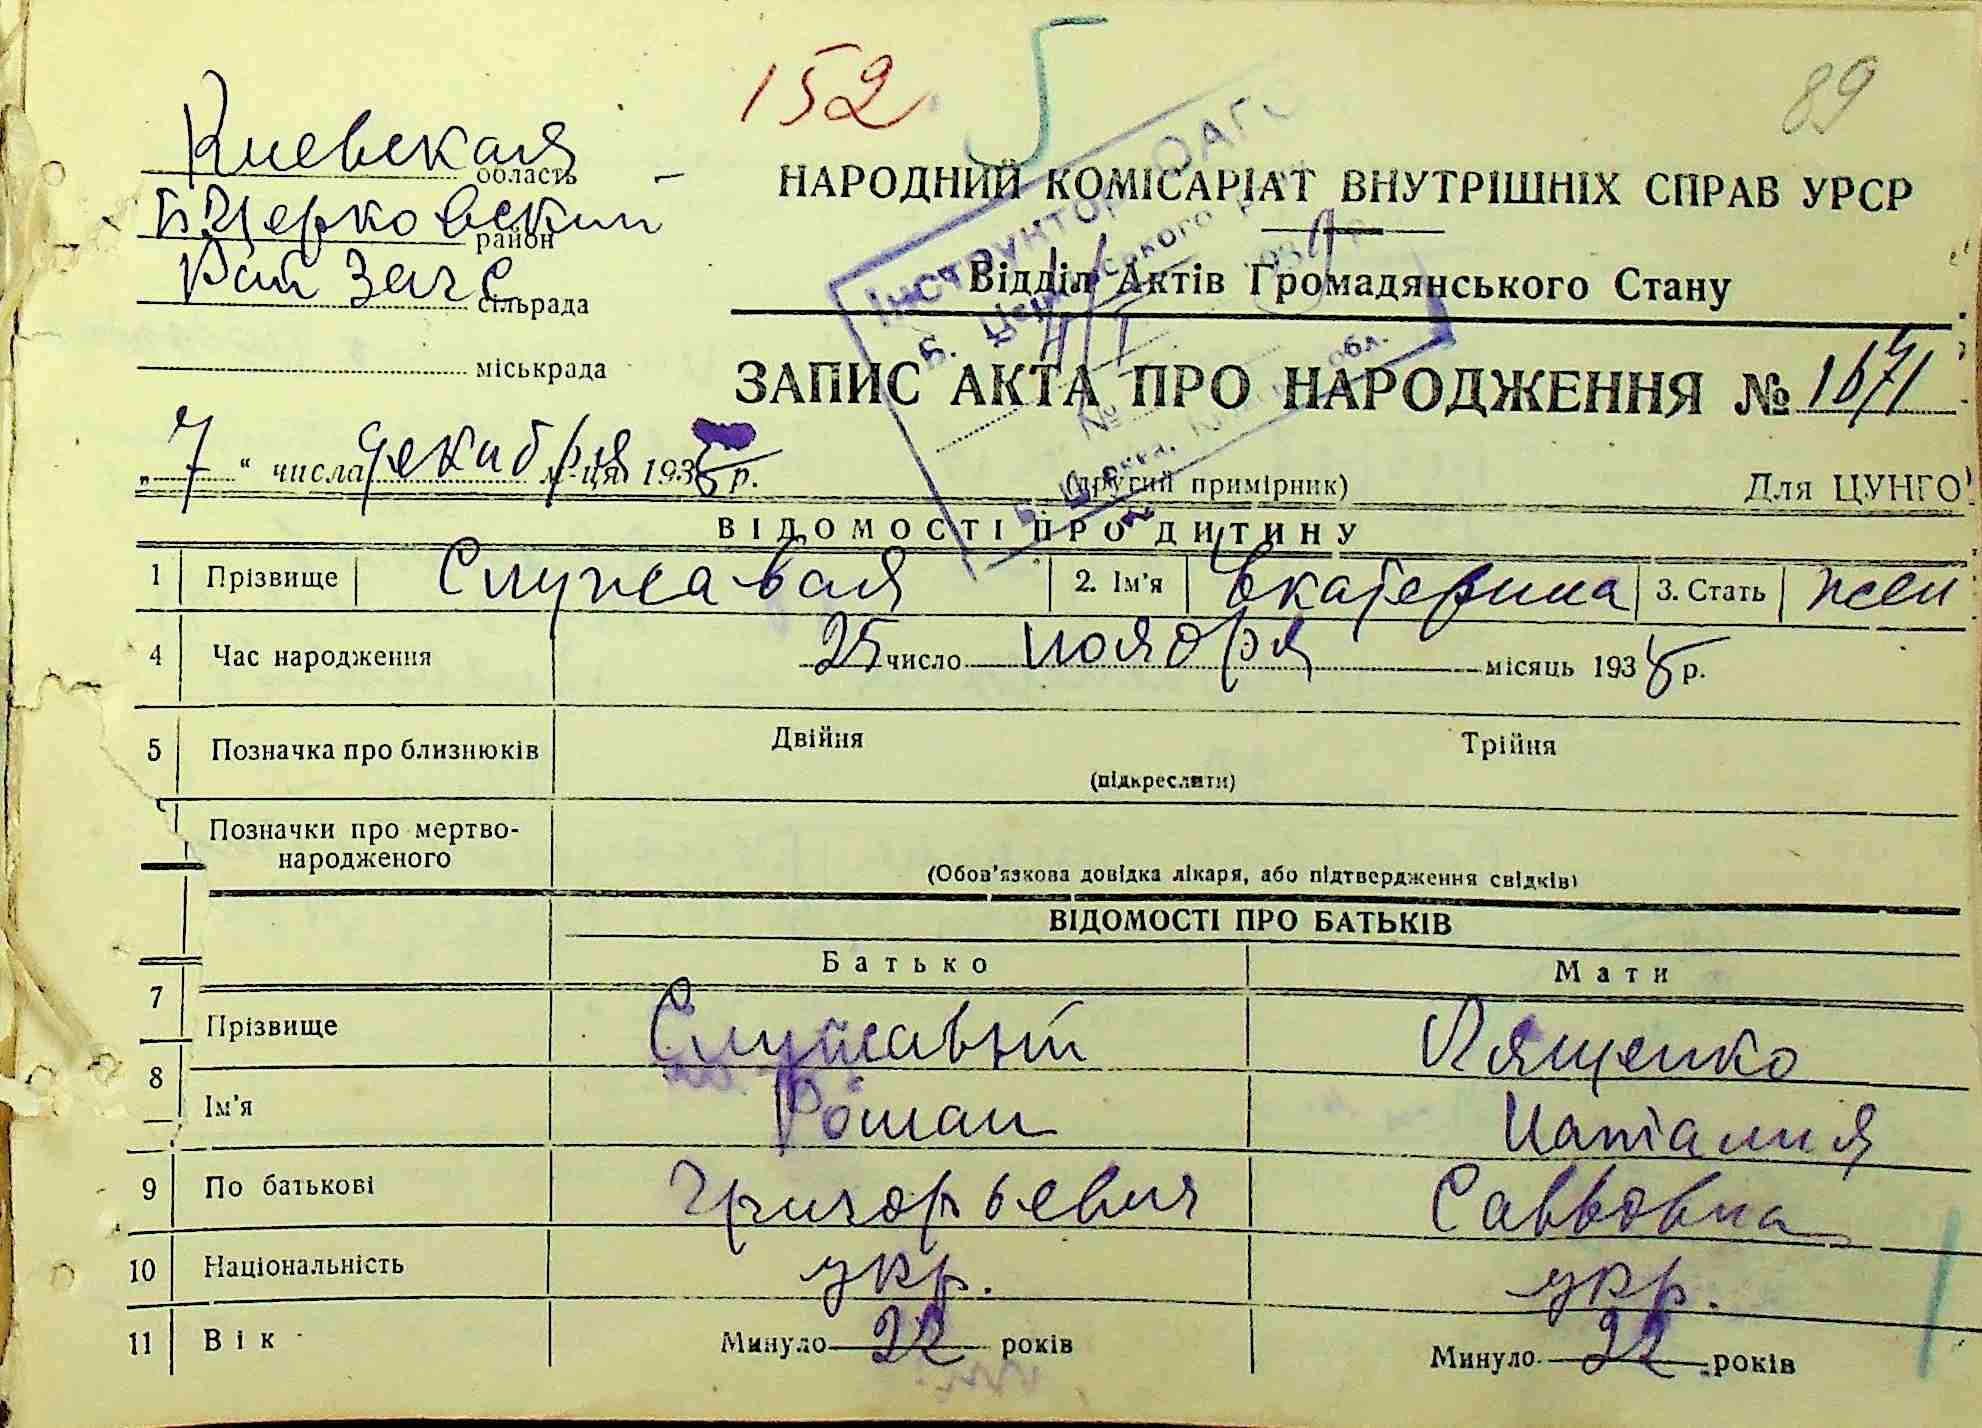 152 5 89
Киевская
область
Б Церковский
район
НАРОДНИЙ КОМІСАРІАТ ВНУТРІШНІХ СПРАВ УРСР
Рай Загс
сільрада
Відділ Актів Громадянського Стану
міськрада
ЗАПИС АКТА ПРО НАРОДЖЕННЯ № 1671
„7“ числа декабря м-ця 1938 р.
(другий примірник) Для ЦУНГО
Інструктор ОАГС
Б. Церківського
обл.
ВІДОМОСТІ ПРО ДИТИНУ
1 Прізвище Служавая 2. Ім'я Екатерина 3. Стать жен
4 Час народження 25 число ноября місяць 1938 р.
5 Позначка про близнюків Двійня Трійня
(підкреслити)
Позначки про мертво-
народженого
(Обов'язкова довідка лікаря, або підтвердження свідків)
ВІДОМОСТІ ПРО БАТЬКІВ
Батько Мати
7 Прізвище Служавый Лященко
8 Ім'я Роман Наталия
9 По батькові Григорьевич Савовна
10 Національність укр. укр.
11 Вік Минуло 22 років Минуло 22 років